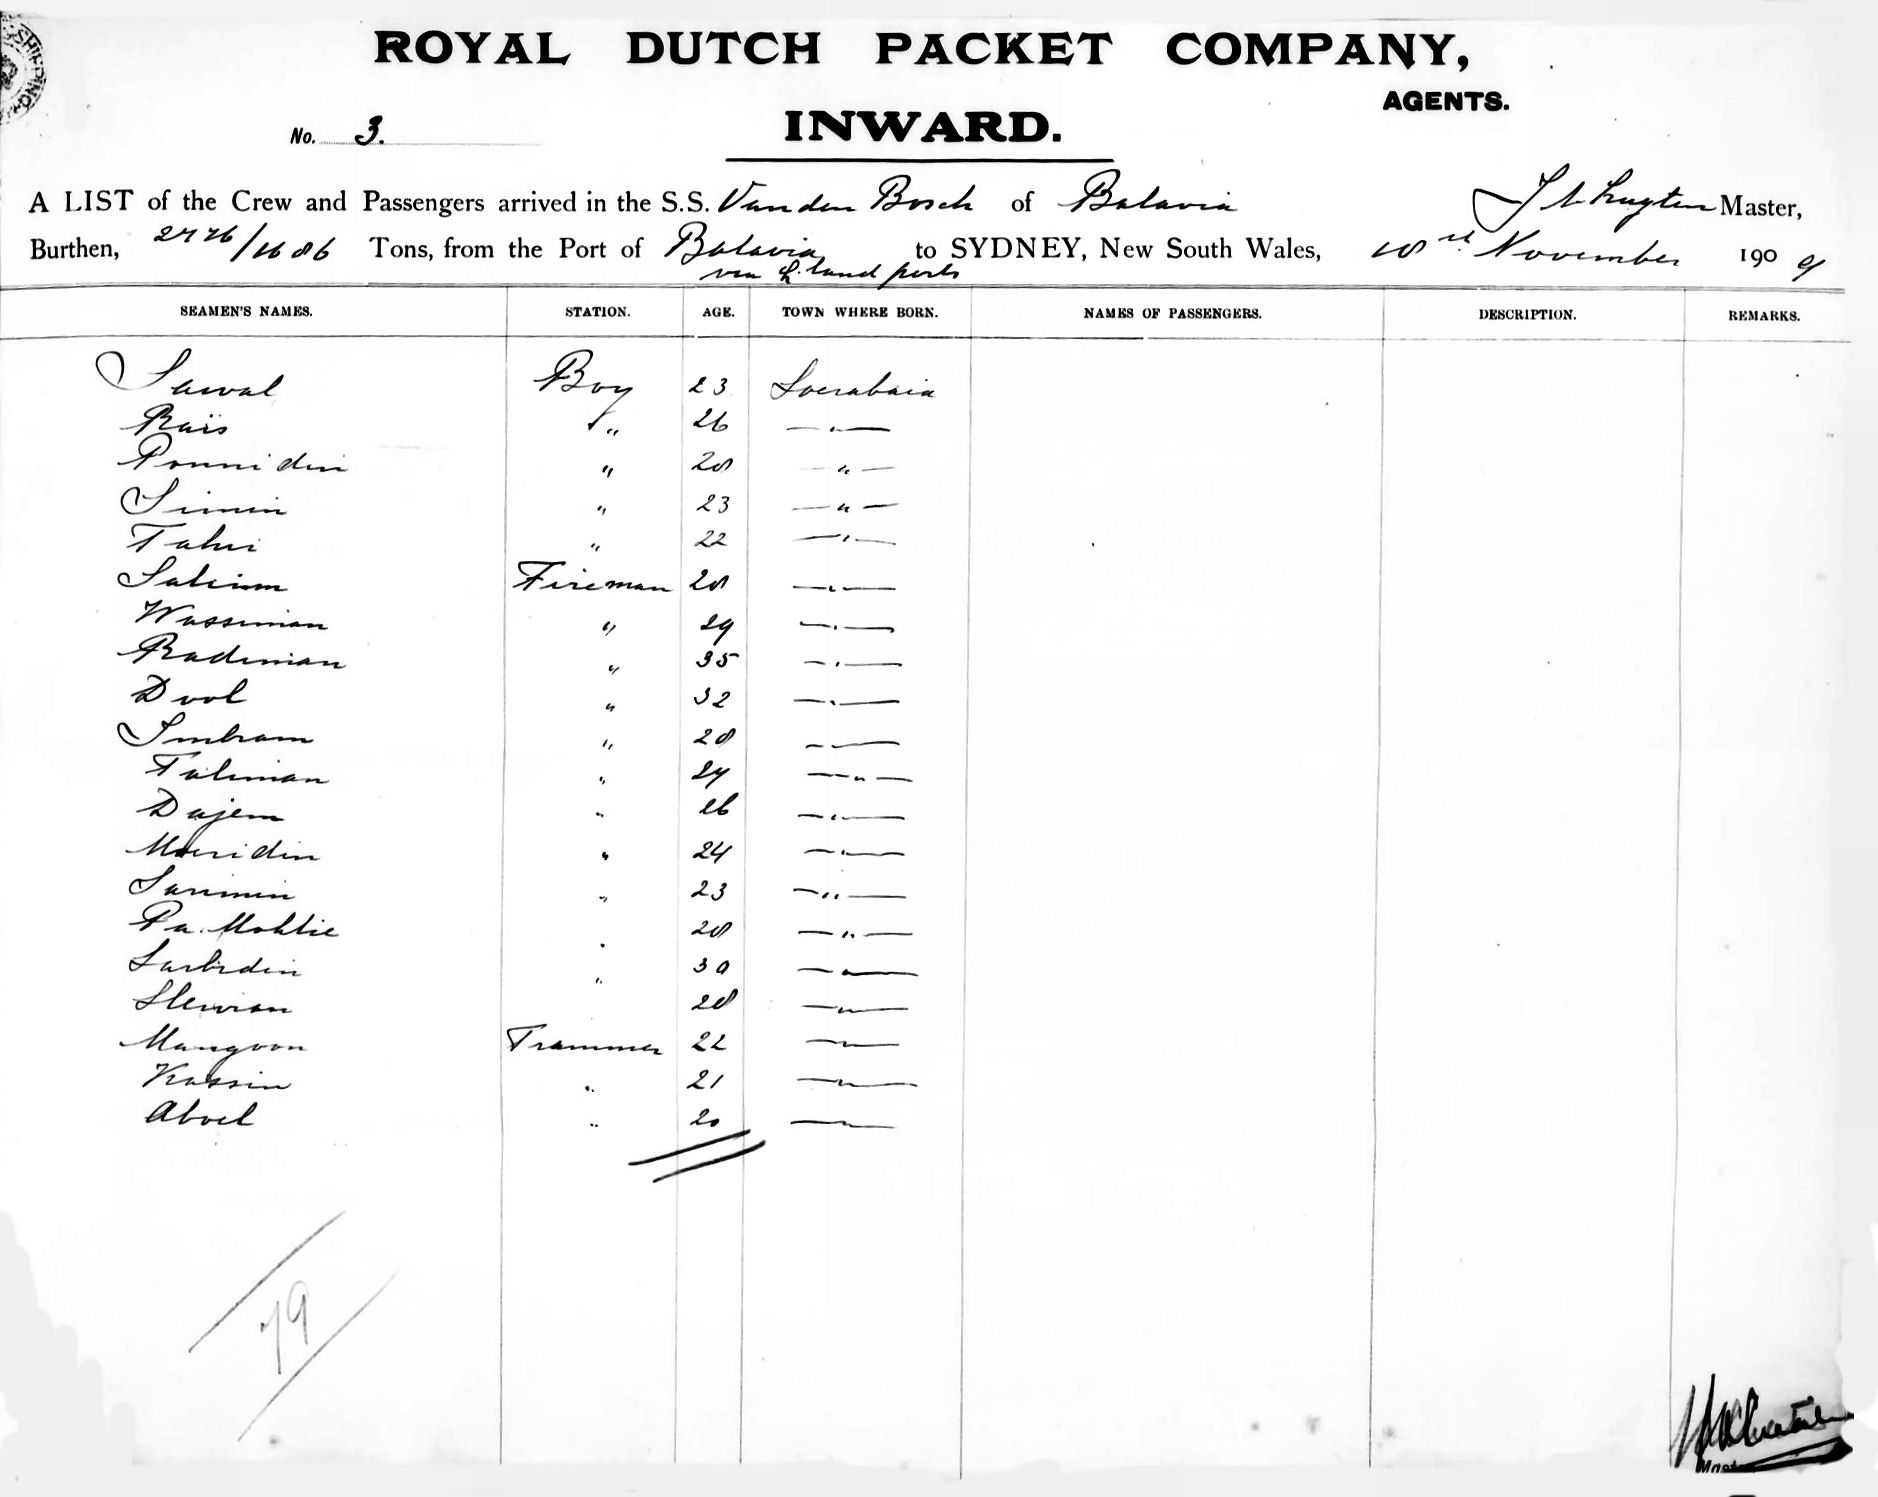 ROYAL DUTCH PACKET COMPANY,
AGENTS.
No. 3.
INWARD.
A LIST of the Crew and Passengers arrived in the S.S. Van den Bosch of Batavia Master,
Burthen, Tons, from the Port of Batavia to SYDNEY, New South Wales, November 1909
via ports
SEAMEN'S NAMES. STATION. AGE. TOWN WHERE BORN. NAMES OF PASSENGERS. DESCRIPTION. REMARKS.
Sawal Boy 23 Soerabaia
Rais " 26 — " —
Ponnidin " 28 — " —
Simin " 23 — " —
Tahir " 22 — " —
Saleimm Fireman 28 — " —
Wassiman " 29 — " —
Radiman " 35 — " —
Dool " 32 — " —
Imbram " 28 — " —
Taliman " 24 — " —
Dajem " 26 — " —
Moeridin " 24 — " —
Sarimin " 23 — " —
Pa. Mohtie " 28 — " —
Sarbidin " 30 — " —
28 — " —
Mangoon Trammer 22 — " —
Kassin " 21 — " —
Aboel " 20 — " —
79